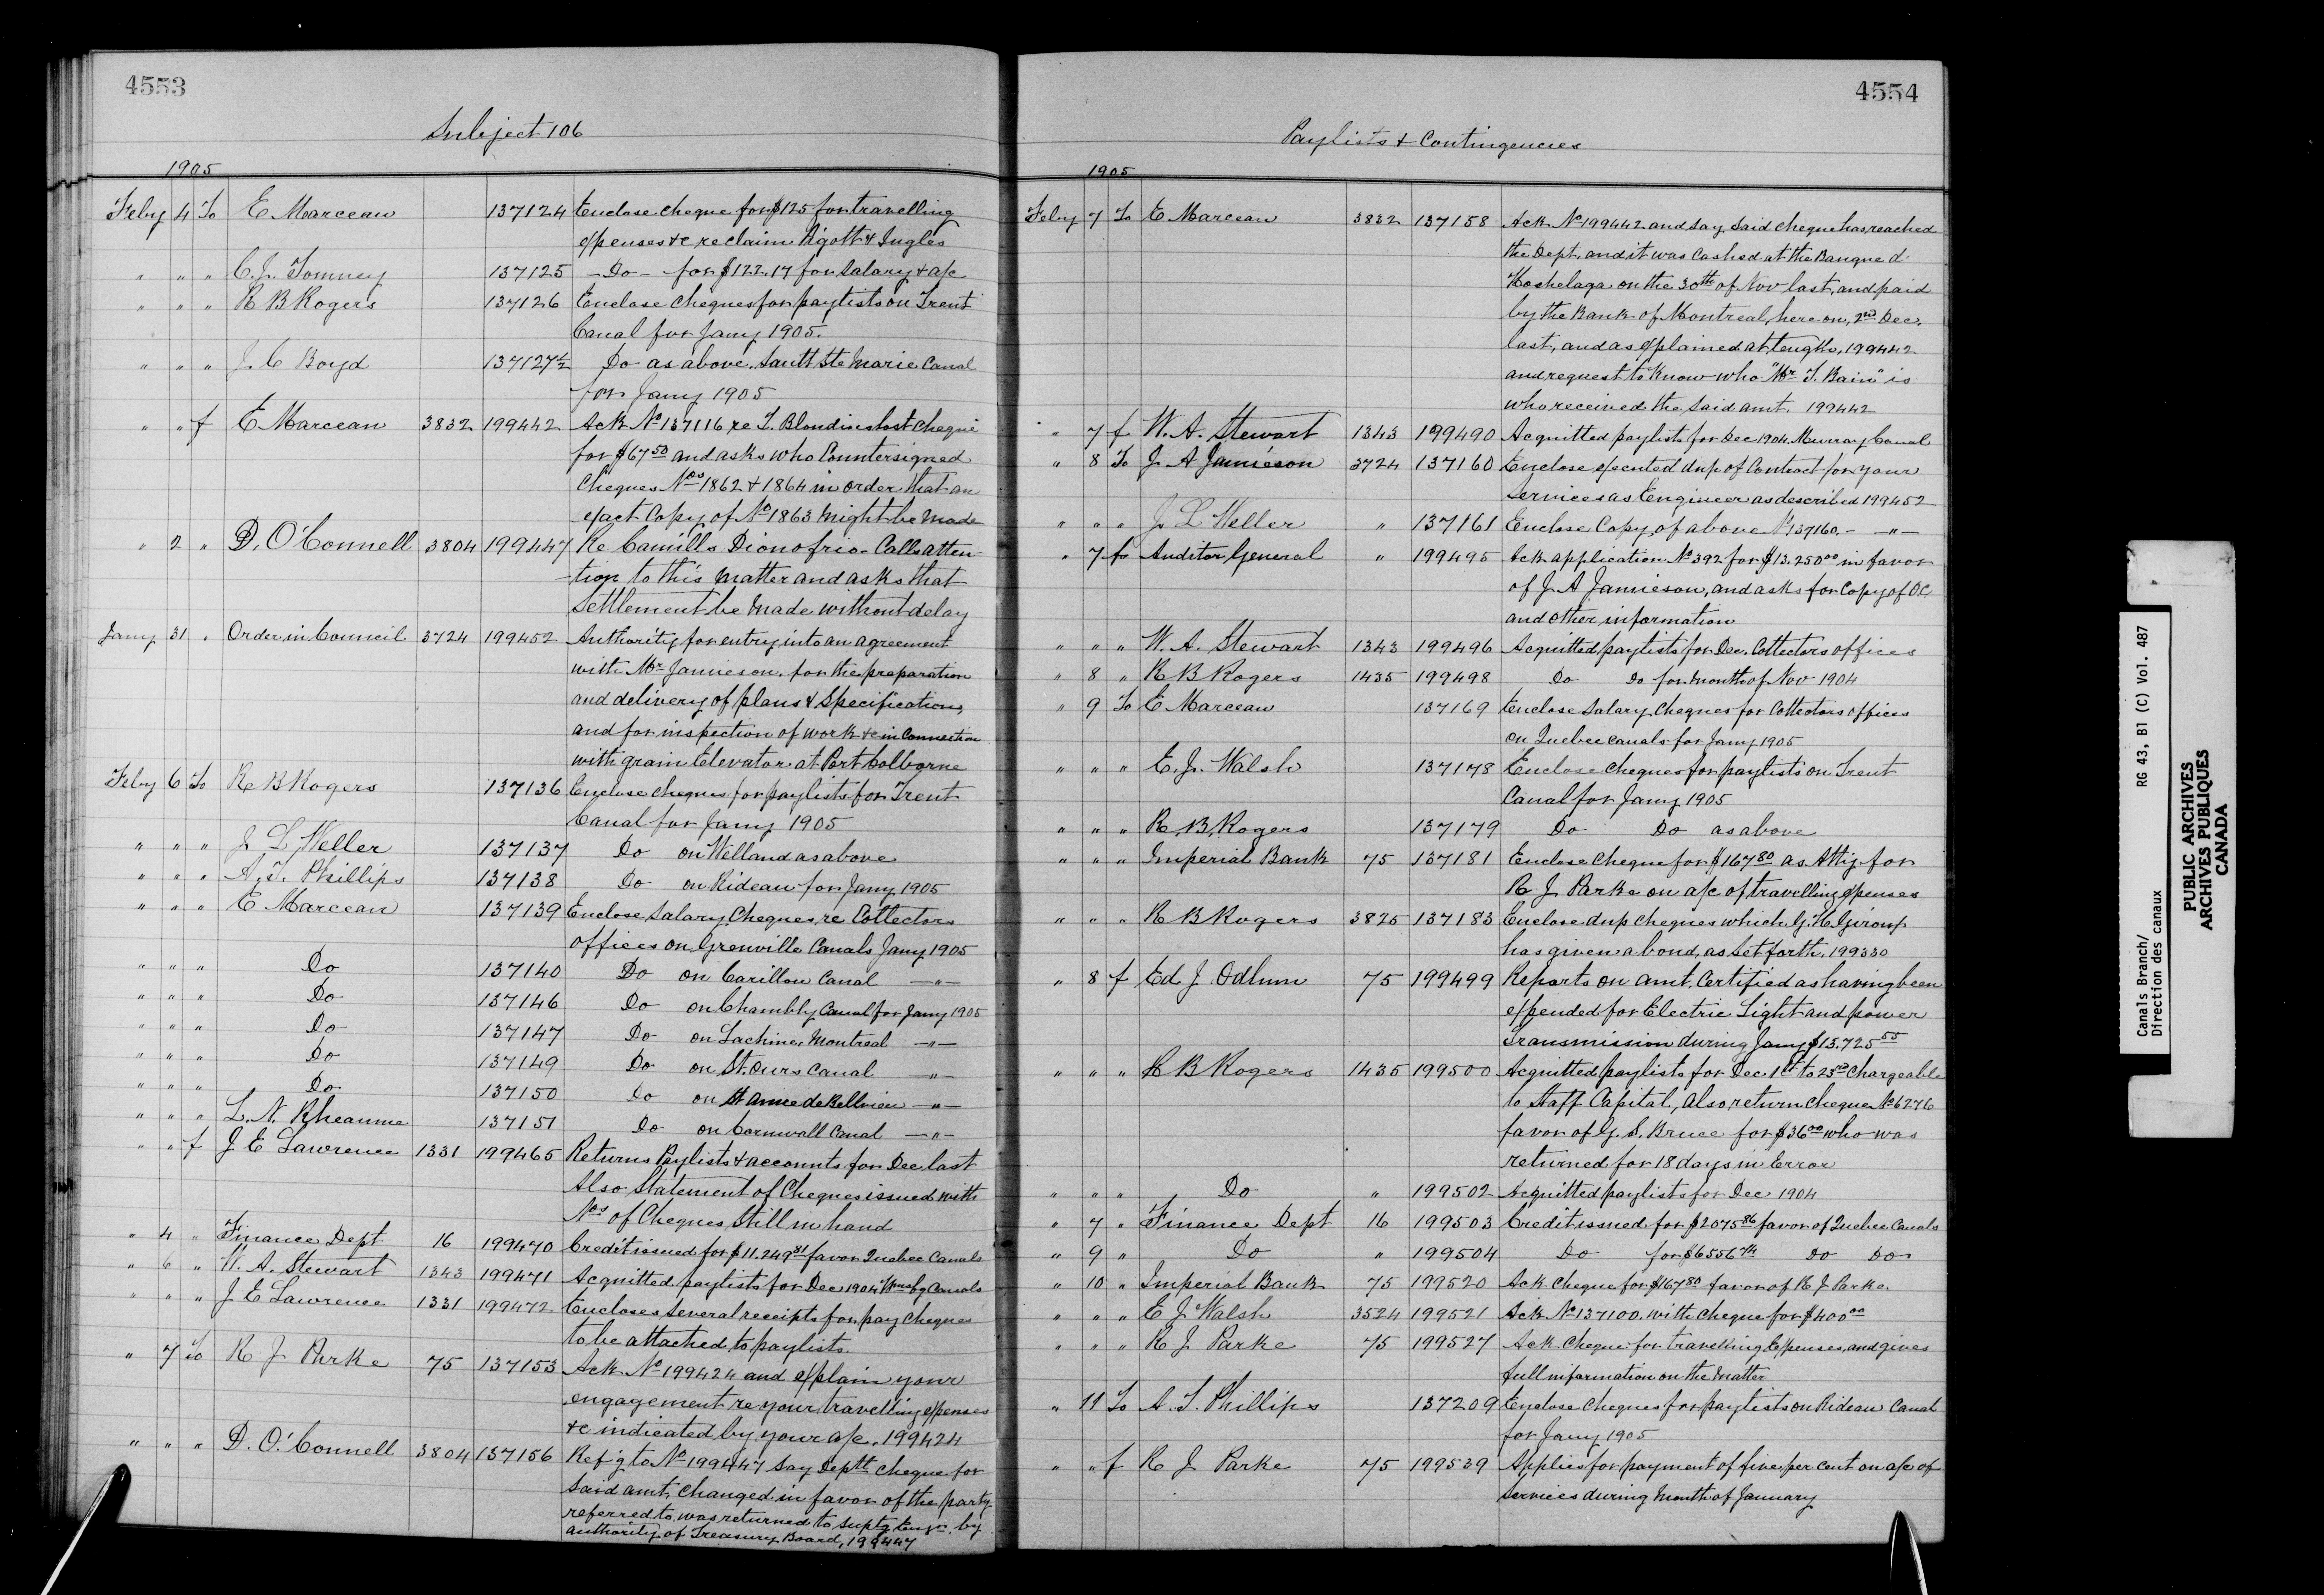 4553
Subject 106
1905
Feby 4 To E Marceau 137124 Enclose cheque for $125 for travelling
expenses &c re claim Pigott & Ingles
" " " C. J. Tomney 137125 - Do - for $122.17 for salary & a/c
" " " R B Rogers 137126 Enclose cheques for paylists on Trent
Canal for Jany 1905.
" " " J. C Boyd 137127½ Do as above. Sault Ste Marie Canal
for Jany 1905
" " f E Marceau 3832 199442 Ack No 137116 re T. Blondin's lost cheque
for $67 50 and asks who Countersigned
Cheques Nos 1862 & 1864 in order that an
exact Copy of No 1863 might be made
" 2 " D. O'Connell 3804 199447 Re Camillo Dionofrio - Calls atten-
-tion to this matter and asks that
Settlement be made without delay
Jany 31 " Order in Council 3724 199452 Authority for entry into an agreement
with Mr Jamieson. for the preparation
and delivery of plans & Specifications,
and for inspection of work &c in Connection
with grain Elevator at Port Colborne
Feby 6 To R B Rogers 137136 Enclose cheques for paylists for Trent
Canal for Jany 1905
" " " J L Weller 137137 Do on Welland as above
" " " A. T. Phillips 137138 Do on Rideau for Jany 1905
" " " E Marceau 137139 Enclose Salary Cheques, re Collectors
offices on Grenville Canals Jany 1905
" " " Do 137140 Do on Carillon Canal - " -
" " " Do 137146 Do on Chambly Canal for Jany 1905
" " " Do 137147 Do on Lachine, Montreal - " -
" " " Do 137149 Do on St. Ours Canal - " -
" " " Do 137150 Do on St Anne de Bellview - " -
" " " L. N. Rheaume 137151 Do on Cornwall Canal - " -
" " f J E Lawrence 1331 199465 Returns Paylists & accounts for Dec last
Also Statement of Cheques issued with
Nos of Cheques Still in hand
" 4 " Finance Dept 16 199470 Credit issued for $11.249 81 favor Quebec Canals
" 6 " W. A. Stewart 1343 199471 Acquitted paylists for Dec 1904 Wmsbg Canals
" " " J E Lawrence 1331 199472 Encloses several receipts for pay cheques
to be attached to paylists.
" 7 To R J Parke 75 137153 Ack No 199424 and explain your
engagement re your travelling expenses
&c indicated by your a/c. 199424
" " " D. O'Connell 3804 137156 Refg to No 199447 say Deptl cheque for
said amt. Changed in favor of the party
referred to, was returned to Suptg Engr. by
authority of Treasury Board, 199447
4554
Paylists & Contingencies
1905
Feby 7 To E Marceau 3832 137158 Ack No 199442 and say said cheque has reached
the Dept. and it was Cashed at the Banque d'
Hochelaga on the 30th of Nov last, and paid
by the Bank of Montreal, here on, 2nd Dec.
last, and as explained at length, 199442
and request to know who "Mr T. Bain" is
who received the said amt. 199442
" 7 f W. A. Stewart 1343 199490 Acquitted paylists for Dec 1904. Murray Canal
" 8 To J A Jamieson 3724 137160 Enclose executed dup of Contract for your
Services as Engineer as described 199452
" " " J L Weller " 137161 Enclose Copy of above No 137160. - - " -
" 7 fr Auditor General " 199495 Ack application No 392 for $13.250 00 in favor
of J. A Jamieson, and asks for copy of OC.
and other information
" " " W. A. Stewart 1343 199496 Acquitted paylists for Dec. Collectors offices
" 8 " R B Rogers 1435 199498 Do Do for month of Nov 1904
" 9 To E Marceau 137169 Enclose Salary Cheques for Collectors offices
on Quebec Canals for Jany 1905
" " " E. J. Walsh 137178 Enclose cheques for paylists on Trent
Canal for Jany 1905
" " " R. B. Rogers 137179 Do Do as above
" " " Imperial Bank 75 137181 Enclose Cheque for $167 80 as Atty for
R J Parke on a/c of travelling expenses
" " " R B Rogers 3825 137183 Enclose dup cheques which G. H. Giroux
has given a bond, as Set forth. 199330
" 8 f Ed J. Odlum 75 199499 Reports on amt. Certified as having been
expended for Electric Light and power
Transmission during Jany $15.725 55
" " " R B Rogers 1435 199500 Acquitted paylists for Dec 1st to 23rd Chargeable
to Staff Capital, also return cheque No 6276
favor of G. S. Bruce for $36 00 who was
returned for 18 days in Error
" " " Do " 199502 Acquitted paylists for Dec 1904
" 7 " Finance Dept 16 199503 Credit issued for $2075 86 favor of Quebec Canals
" 9 " Do " 199504 Do for $6556 Do Do
" 10 " Imperial Bank 75 199520 Ack cheque for $167 80 favor of R J Parke.
" " " E J Walsh 3524 199521 Ack No 137100. with cheque for $400 00
" " " R J Parke 75 199527 Ack Cheque for travelling Expenses, and gives
full information on the matter
" 11 To A. T. Phillips 137209 Enclose cheques for paylists on Rideau Canal
for Jany 1905
" " f R J Parke 75 199539 Applies for payment of five per cent on a/c of
Services during month of January
Canals Branch/ RG 43, B1 (C) Vol. 487
Direction des canaux
PUBLIC ARCHIVES
ARCHIVES PUBLIQUES
CANADA